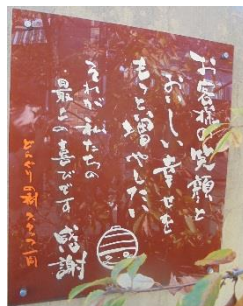 お客様の笑顔と
おいしい幸せを
もっと増やしたい
それが私たちの
最上の喜びです
感謝
どんぐりの樹 スタッフ一同